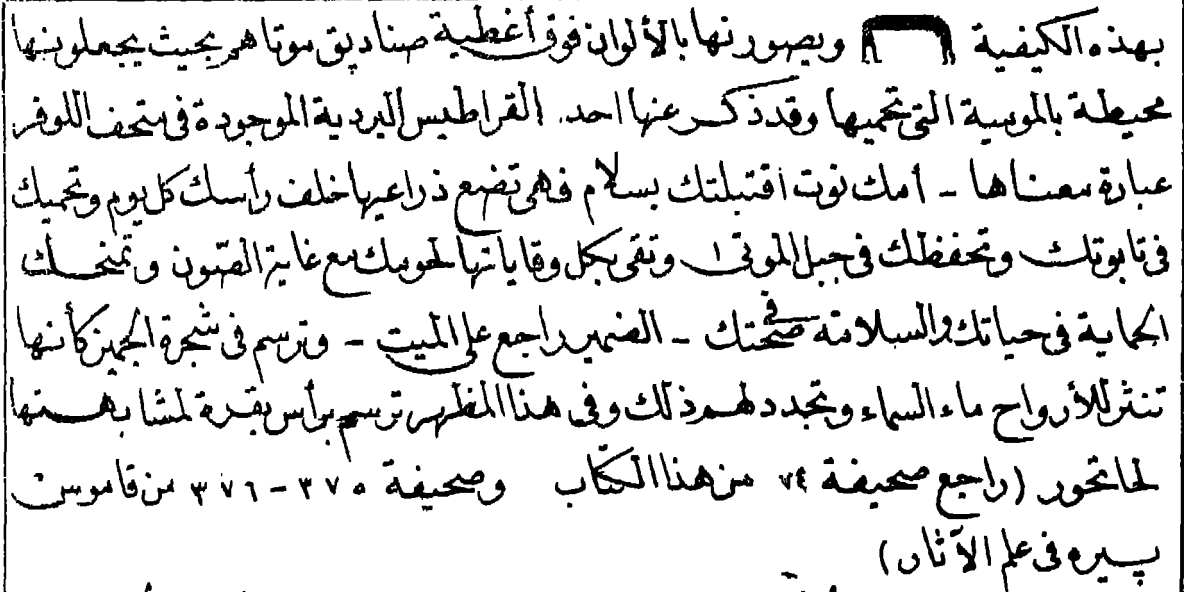 بهذه الكيفية ويصورنها بالألوان فوق أغطية صناديق موتاهم بحيث يجعلونها
محيطة بالموسية التى تحميها وقد ذكر عنها احد. القراطيس البردية الموجودة فى متحف اللوفر
عبارة معناها - أمك نوت اقتبلتك بسلام فهى تضع ذراعيها خلف رأسك كل يوم وتحميك
فى تابوتك وتحفظك فى جبل الموتى ١ وتقى بكل وقاياتها لحومك مع غاية الصون وتمنحك
الحماية فى حياتك والسلامة فى صحتك - الضمير راجع على الميت - وترسم فى شجرة الجميز كأنها
تنثر للأرواح ماء السماء وتجدد لهم ذلك وفى هذا المظهر ترسم برأس بقرة لمشابهتها
لحاتحور (راجع صحيفة ٧٤ من هذا الكتاب وصحيفة ٣٧٥ - ٣٧٦ من قاموس
پيره فى علم الآثار)